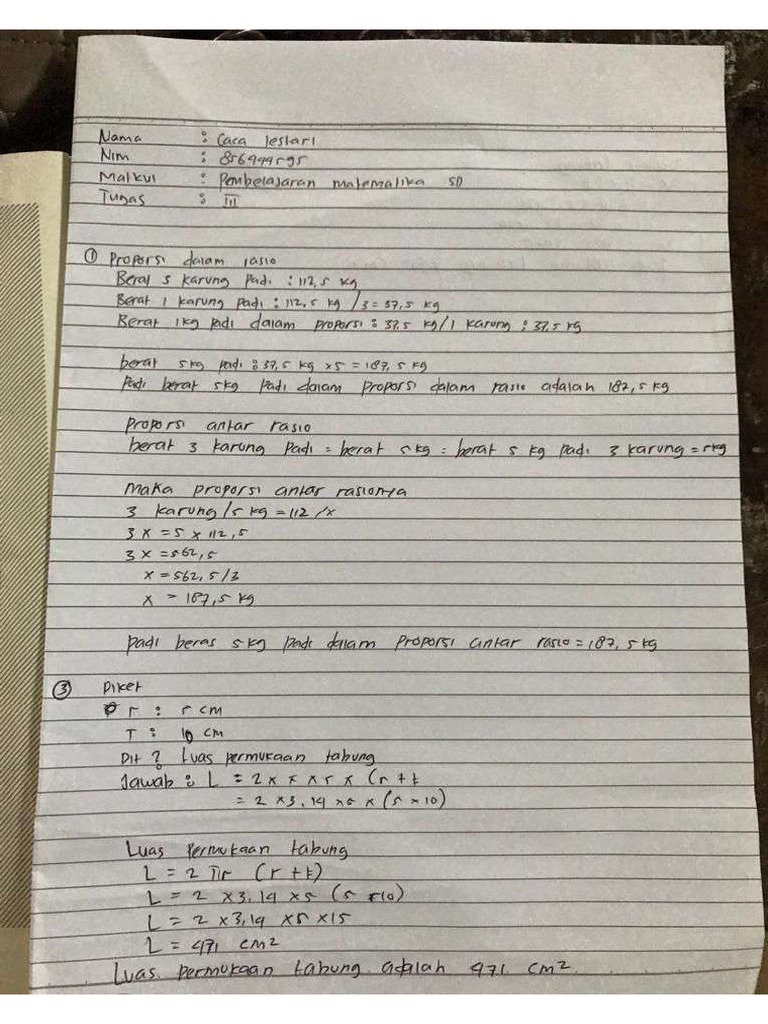 Nama : Caca lestari
Nim : 856999595
Matkul : Pembelajaran matematika SD
Tugas : III
① Proporsi dalam rasio
Berat 3 karung padi : 112,5 kg
Berat 1 karung padi : 112,5 kg /3 = 37,5 kg
Berat 1kg padi dalam proporsi : 37,5 kg/1 karung : 37,5 kg
berat 5kg padi : 37,5 kg x5 = 187,5 kg
Padi berat 5kg padi dalam proporsi dalam rasio adalah 187,5 kg
Proporsi antar rasio
berat 3 karung padi = berat 5kg = berat 5 kg padi 3 karung = 5kg
Maka proporsi antar rasionya
3 karung/5 kg = 112 /x
3x = 5 x 112,5
3x = 562,5
x = 562,5/3
x = 187,5 kg
padi beras 5kg padi dalam proporsi antar rasio = 187,5 kg
③ Diket
r : 5 cm
T : 10 cm
Dit ? Luas permukaan tabung
Jawab : L = 2 x x x 5 x (r + t
= 2 x3,14 x5 x (5 x 10)
Luas permukaan tabung
L = 2 πr (r + t)
L = 2 x3,14 x5 (5 +10)
L = 2 x3,14 x5 x15
L = 471 cm²
Luas permukaan tabung adalah 471 cm²